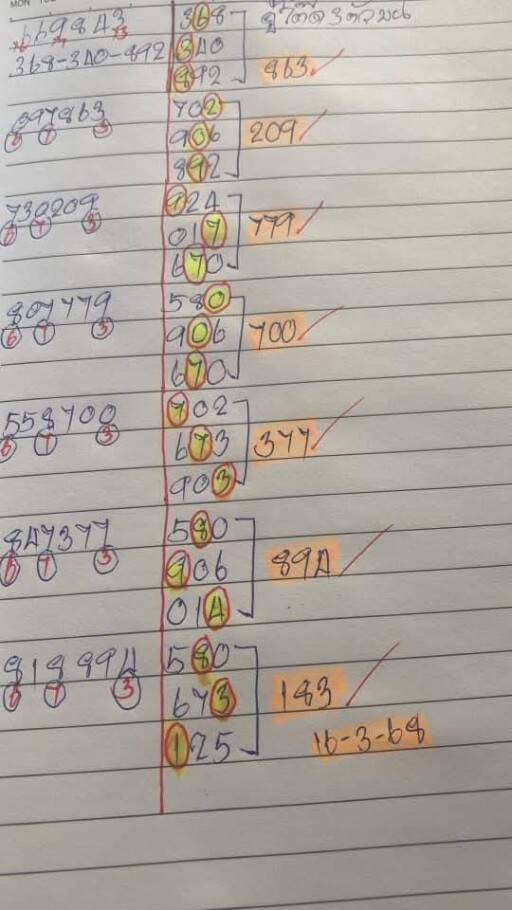 MON
669843
368-340-892
368
340
892
863
097863
6 7 3
702
906
892
209
730209
6 7 3
924
017
670
779
807779
6 7 3
580
906
670
700
558700
6 7 3
702
673
903
377
847377
6 7 3
580
906
014
894
818894
6 7 3
580
673
125
183
16-3-68